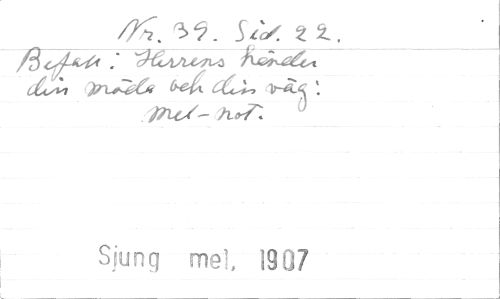 Nr. 39. Sid. 22.
Befall i Herrens händer
din möda och din väg:
mel-not.
Sjung mel, 1907